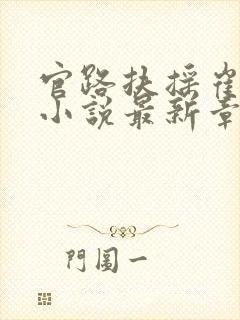 官路扶搖崔
小說最新章
門圖一